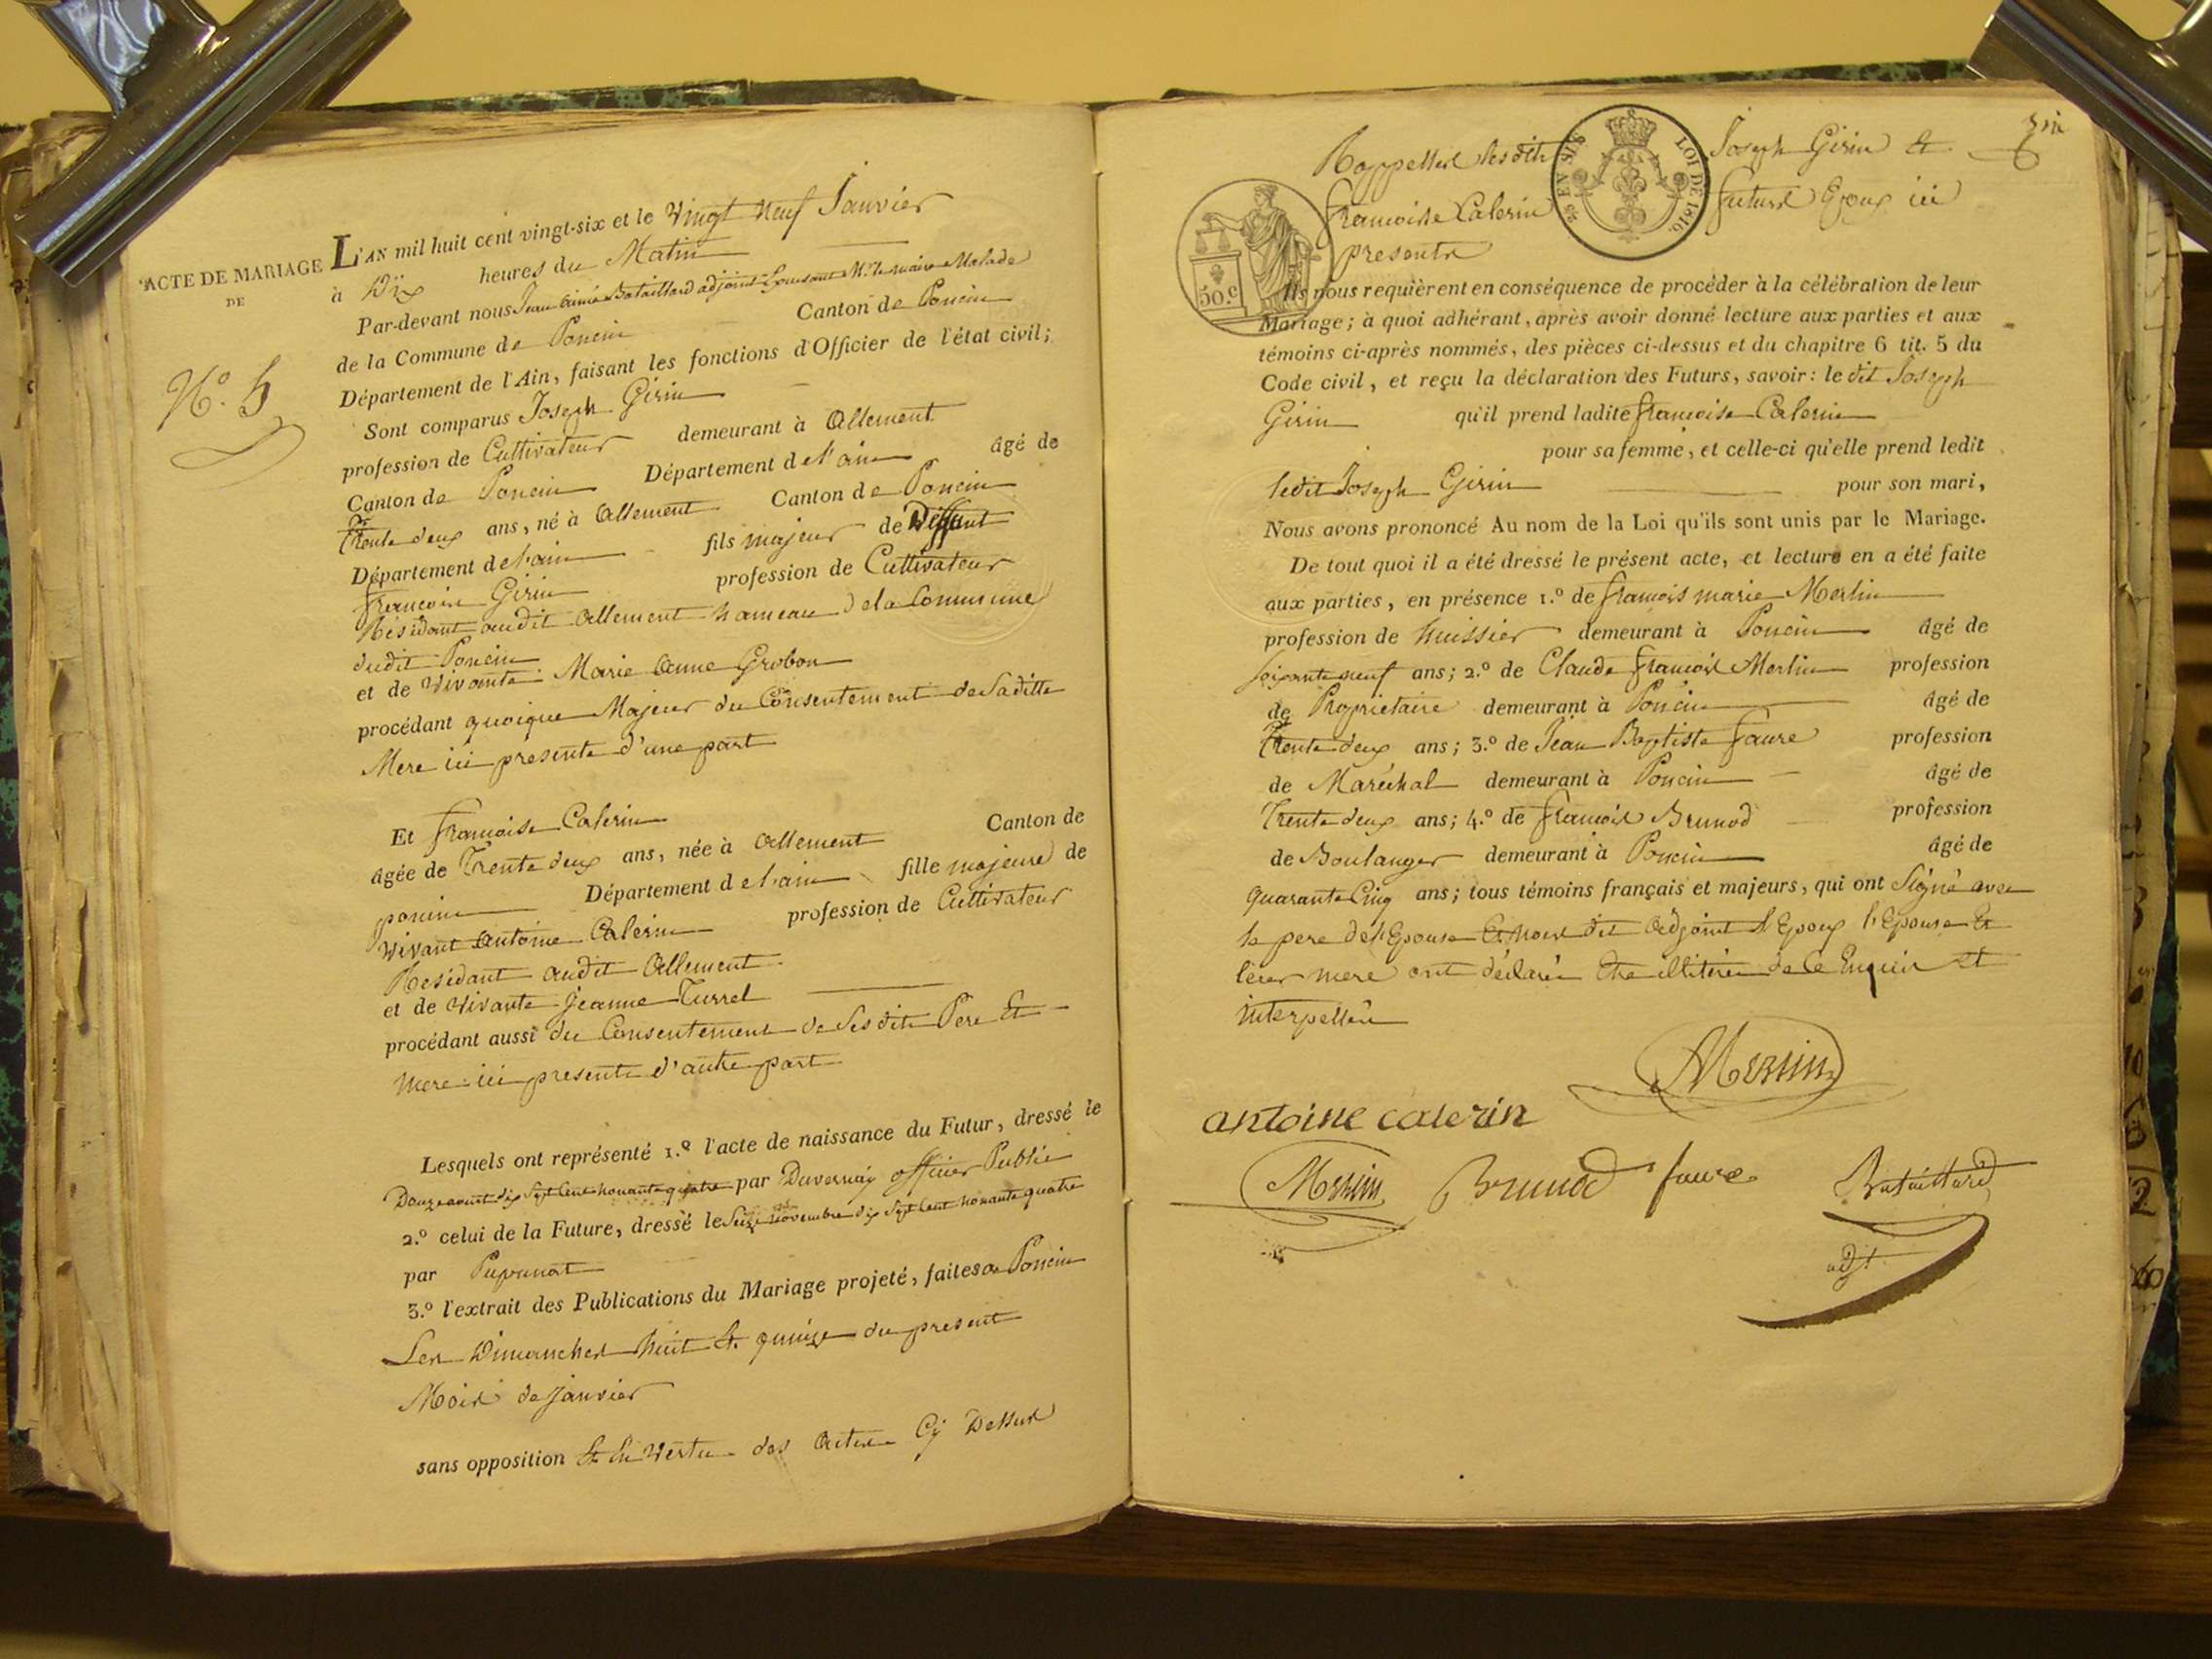 ACTE DE MARIAGE
DE
N.º 5
L'AN mil huit cent vingt-six et le Vingt Neuf Janvier
à Dix heures du Matin
Par-devant nous Jean Aimé Bataillard adjoint Mr le maire Malade
de la Commune de Poncin Canton de Poncin
Département de l'Ain, faisant les fonctions d'Officier de l'état civil;
Sont comparus Joseph Girin
profession de Cultivateur demeurant à Allement
Canton de Poncin Département de l'ain âgé de
Trente deux ans, né à Allement Canton de Poncin
Département de l'ain fils majeur de Deffunt
francois Girin profession de Cultivateur
Résidant audit Allement hameau de la Commune
dudit Poncin
et de vivante Marie Anne Grobon
procédant quoique Majeur du Consentement de Saditte
Mere ici presente d'une part
Et francoise Calerin
âgée de Trente deux ans, née à Allement Canton de
poncin Département de l'ain fille majeure de
vivant Antoine Calerin profession de Cultivateur
Residant audit Allement
et de vivante Jeanne Turrel
procédant aussi du Consentement de Sesdits Pere Et
Mere ici presents d'autre part
Lesquels ont représenté 1.º l'acte de naissance du Futur, dressé le
Douze aout dix Sept Cent nonante quatre par Duvernay officier Public
2.º celui de la Future, dressé le Seize novembre dix Sept Cent nonante quatre
par
3.º l'extrait des Publications du Mariage projeté, faites a Poncin
Les Dimanches huit Et quinze du present
Mois de Janvier
sans opposition Et En Vertu des Actes Cy Dessus
Rappellés lesdits Joseph Girin Et
francoise Calerin futurs Epoux ici
presents
50 c
EN SUS
LOI DE 1816
Ils nous requièrent en conséquence de procéder à la célébration de leur
Mariage; à quoi adhérant, après avoir donné lecture aux parties et aux
témoins ci-après nommés, des pièces ci-dessus et du chapitre 6 tit. 5 du
Code civil, et reçu la déclaration des Futurs, savoir: le dit Joseph
Girin qu'il prend ladite francoise Calerin
pour sa femme, et celle-ci qu'elle prend ledit
ledit Joseph Girin pour son mari,
Nous avons prononcé Au nom de la Loi qu'ils sont unis par le Mariage.
De tout quoi il a été dressé le présent acte, et lecture en a été faite
aux parties, en présence 1.º de francois marie Merlin
profession de huissier demeurant à Poncin âgé de
soixante neuf ans; 2.º de Claude francois Merlin profession
de Proprietaire demeurant à Poncin âgé de
Trente deux ans; 3.º de Jean Baptiste faure profession
de Maréchal demeurant à Poncin âgé de
Trente deux ans; 4.º de francois Brunod profession
de Boulanger demeurant à Poncin âgé de
quarante Cinq ans; tous témoins français et majeurs, qui ont Signé avec
le pere de l'Epouse Et Nous dit Adjoint l'Epoux l'Epouse Et
leur mere ont déclaré Etre illitérés de ce Enquis Et
interpellés
Merlin
antoine calerin
Merlin Brunod faure Bataillard
adjt